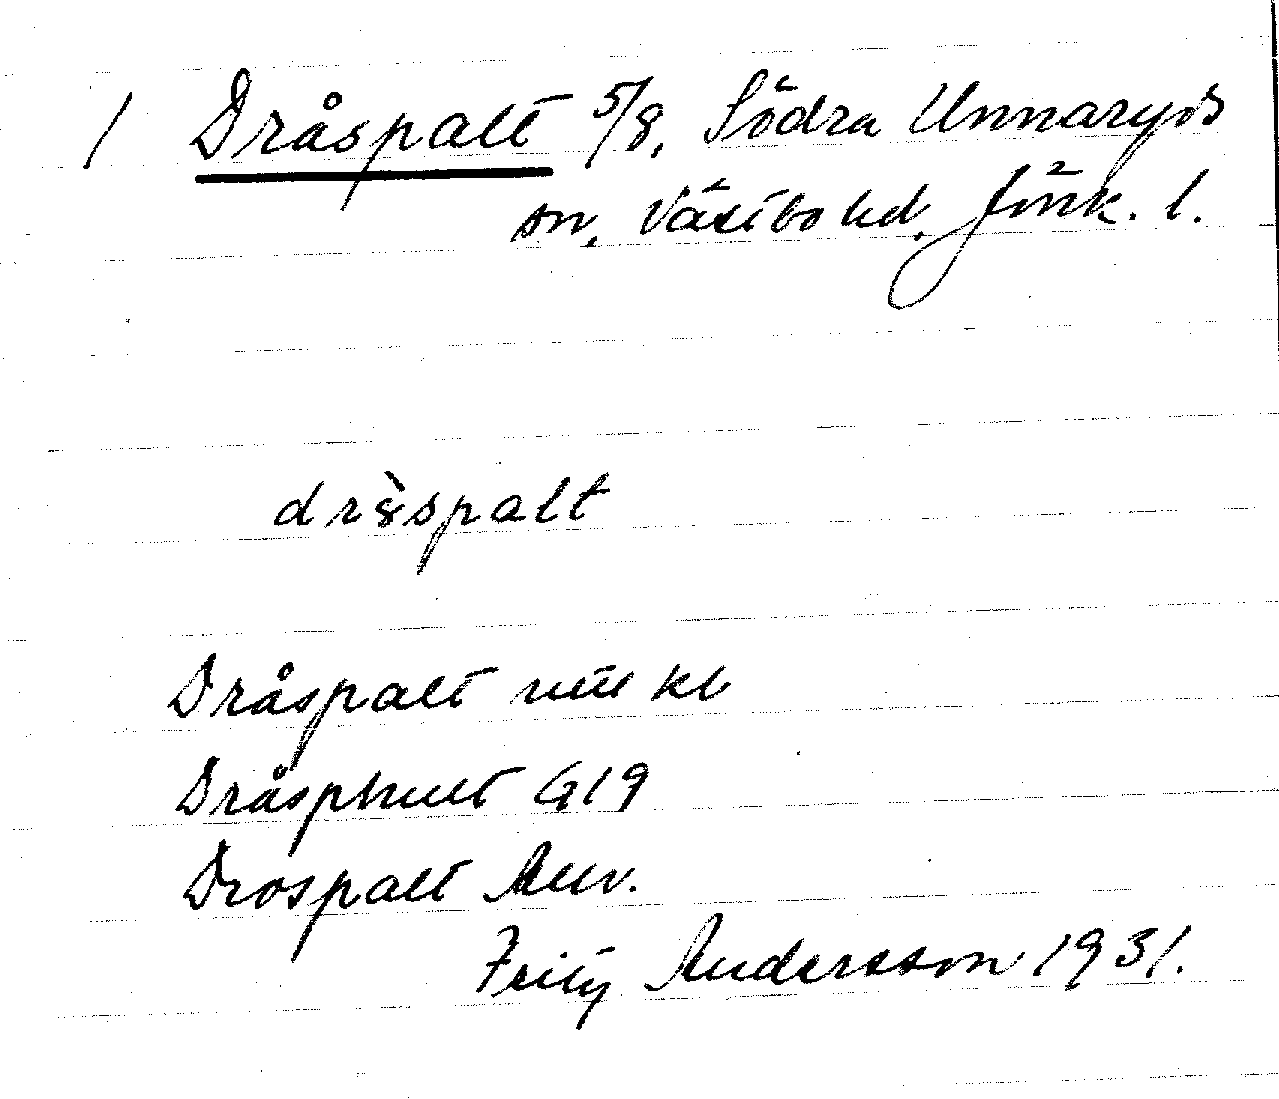 1 Dråspalt 5/8, Södra Unnaryds
sn, Västbo hd, Jönk. l.
dràspalt
Dråspalt
Dråsphult G19
Drospalt
Fritz Andersson 1931.